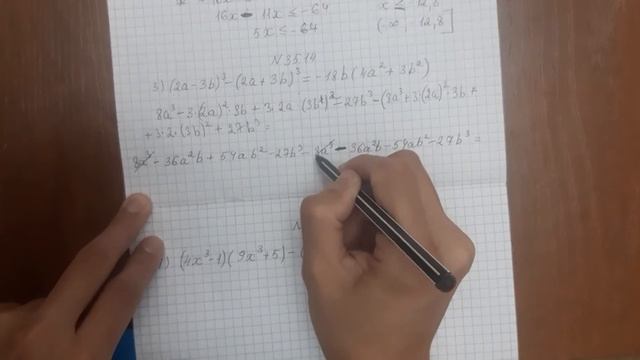 16x - 11x ≤ -64
5x ≤ -64
x ≤ -12,8
(-∞; -12,8]
N 35.14
3) (2a-3b)³-(2a+3b)³=-18b(4a²+3b²)
8a³-3·(2a)²·3b+3·2a·(3b)²-27b³-(8a³+3·(2a)²·3b+
+3·2·(3b)²+27b³=
8a³-36a²b+54ab²-27b³-8a³-36a²b-54ab²-27b³=
1) (4x³-1)(9x³+5)-